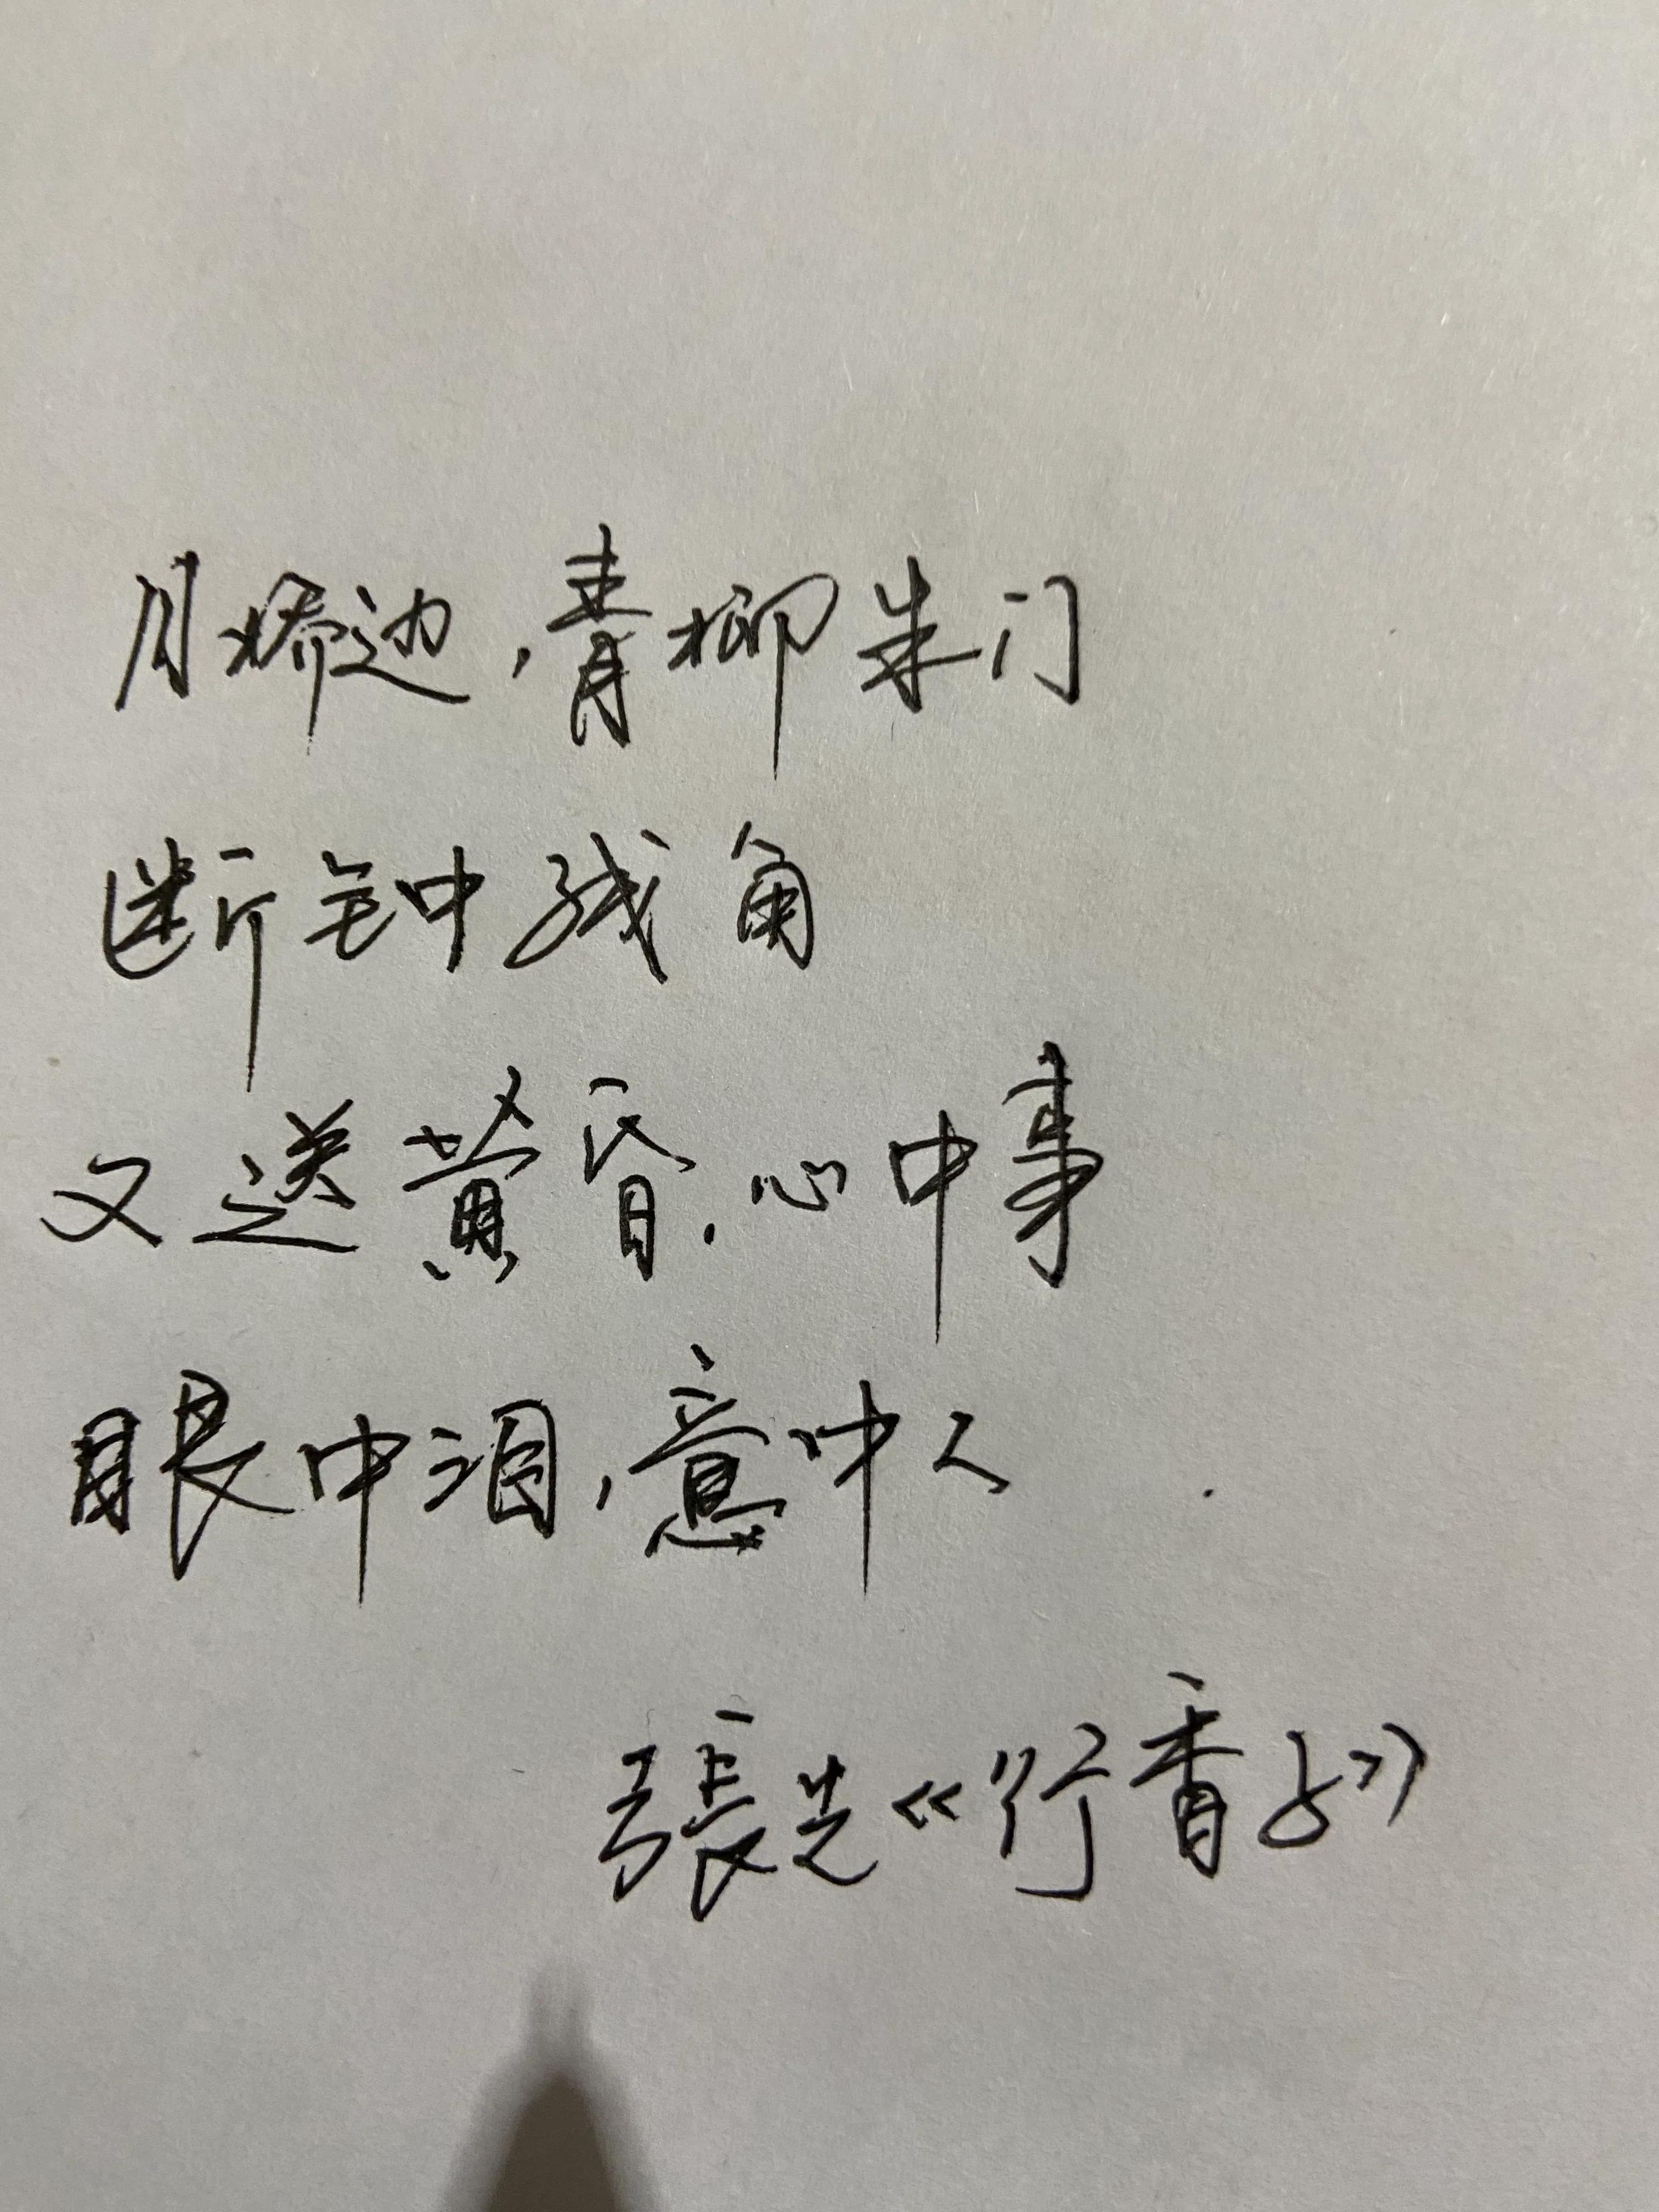 月桥边,青柳朱门
断钟残角
又送黄昏.心中事
眼中泪,意中人
張先《行香子》